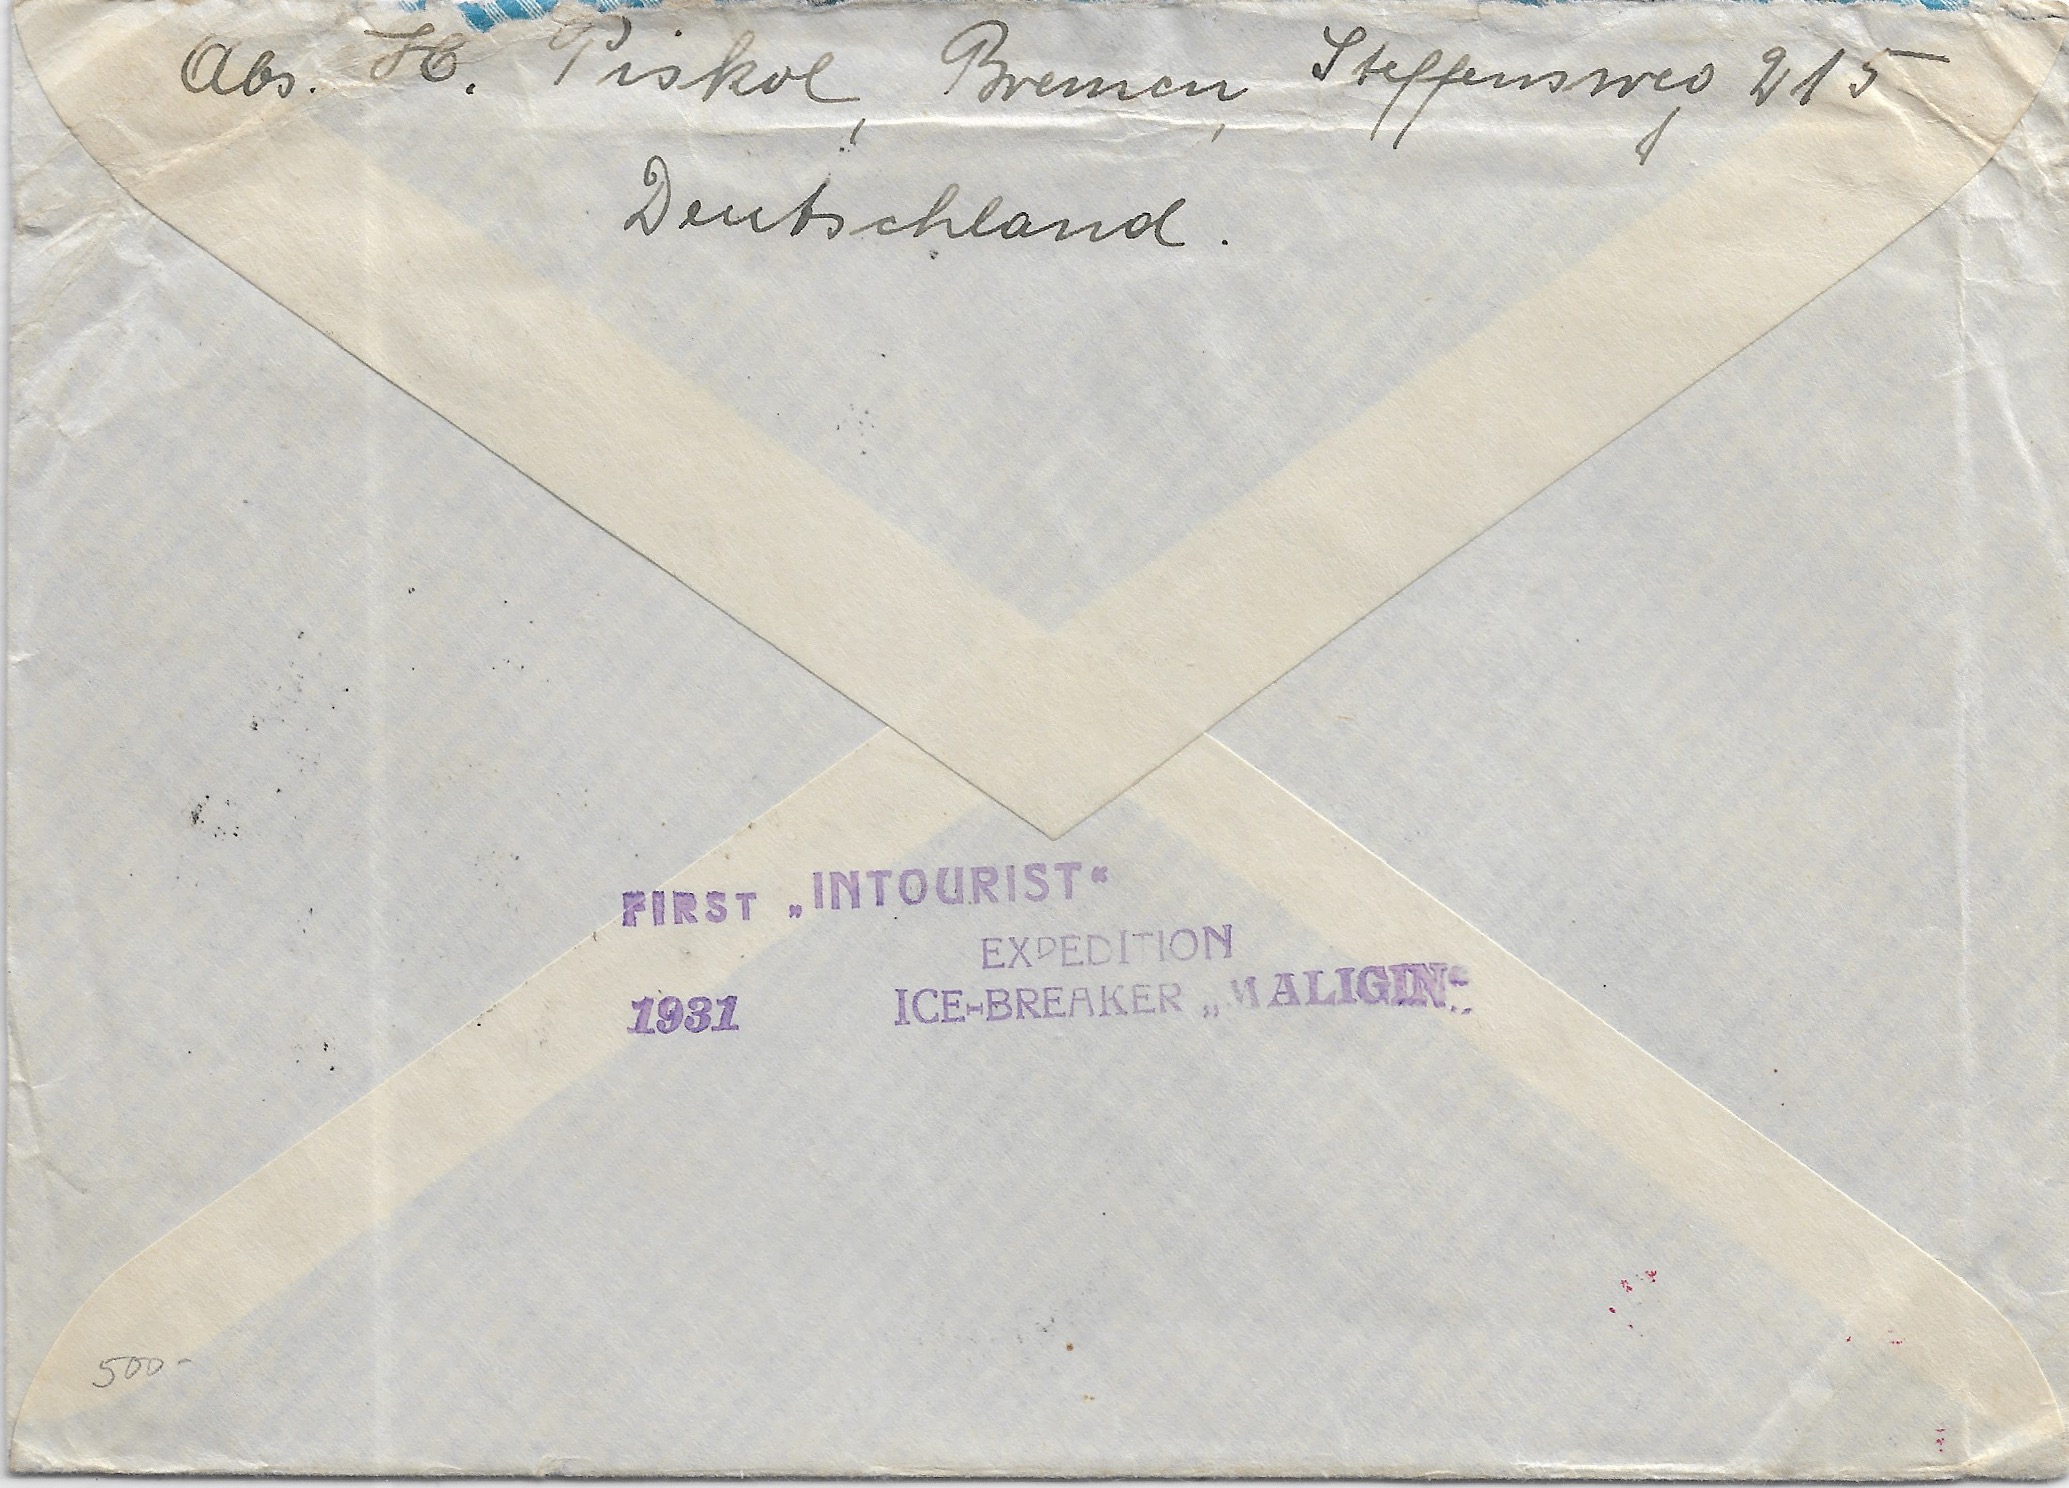 Abs. H. Piskol, Bremen, Steffensweg 215
Deutschland.
FIRST „INTOURIST“
EXPEDITION
1931 ICE-BREAKER „MALIGIN“
500-